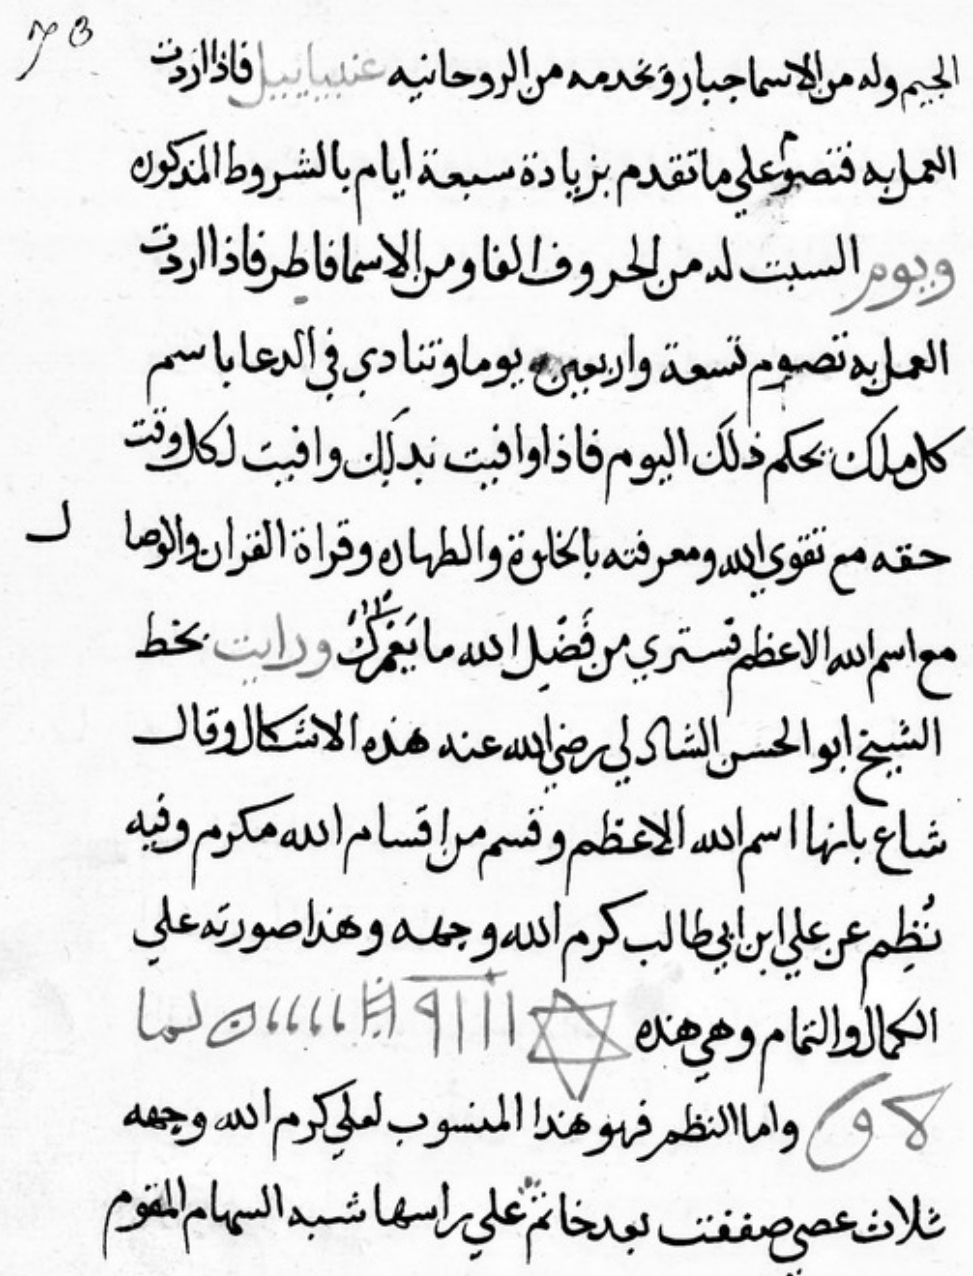 73
الجيم وله من الاسما جبار وتخدمه من الروحانيه عنيياييل فاذا اردت
العمل به فتصوم علي ما تقدم بزيادة سبعة ايام بالشروط المذكوره
ويوم السبت له من الحروف الفا ومن الاسما فاطر فاذا اردت
العمل به تصوم تسعة واربعين يوما وتنادي في الدعا باسم
كل ملك بحكم ذلك اليوم فاذا وافيت بذلك وافيت لكل وقت
حقه مع تقوي الله ومعرفته بالخلوة والطهاره وقراة القران والوصا
ل
مع اسم الله الاعظم فستري من فَضْل الله ما يَغْمُرُكَ ورايت بخط
الشيخ ابو الحسن الشادلي رضي الله عنه هذه الاشكال وقال
شاع بانها اسم الله الاعظم وقسم من اقسام الله مكرم وفيه
نُظِم عن علي ابن ابي طالب كرم الله وجهه وهذا صورته علي
الكمال والتمام وهي هذه
واما النظم فهو هذا المنسوب لعلي كرم الله وجهه
ثلاث عصي صففت بعد خاتم علي راسها شبه السهام المقوم